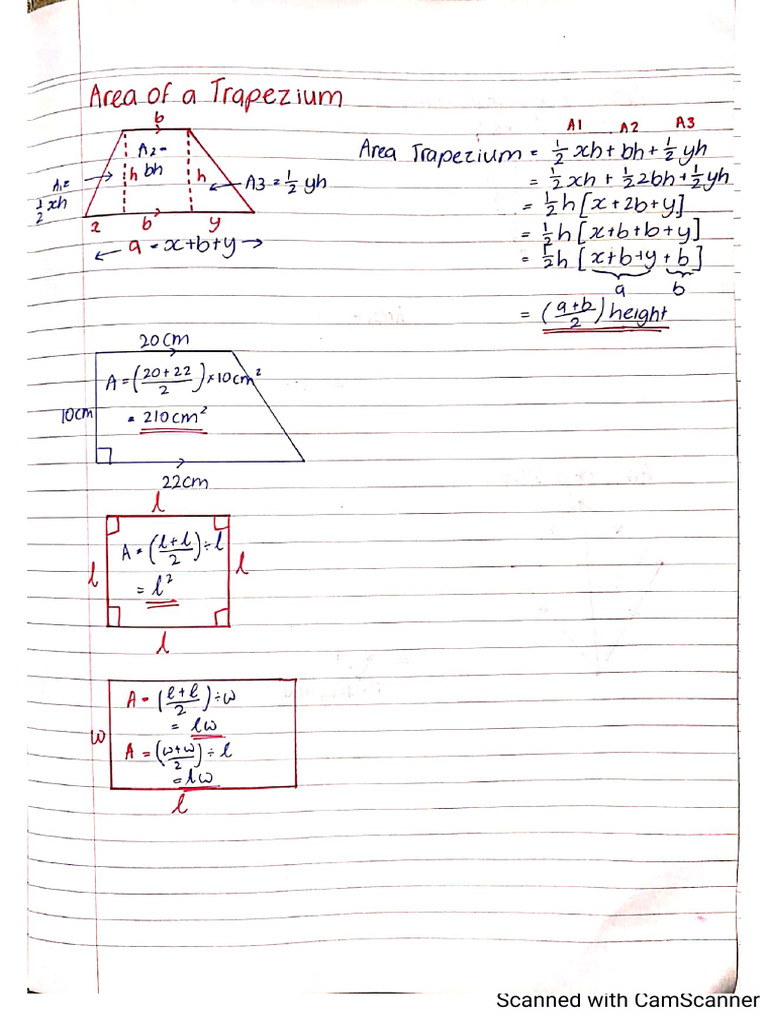 Area of a Trapezium
b
A2 =
bh
h
h
A1 =
1/2 xh
A3 = 1/2 yh
x b y
a = x+b+y
A1 A2 A3
Area Trapezium = 1/2 xh + bh + 1/2 yh
= 1/2 xh + 1/2 2bh + 1/2 yh
= 1/2 h [x+2b+y]
= 1/2 h [x+b+b+y]
= 1/2 h [x+b+y+b]
a b
= (a+b/2) height
20cm
A = (20+22/2) × 10cm²
10cm
= 210cm²
22cm
l
A = (l+l/2) ÷ l
l
l
= l²
l
A = (l+l/2) ÷ w
= lw
w
A = (w+w/2) ÷ l
= lw
l
Scanned with CamScanner